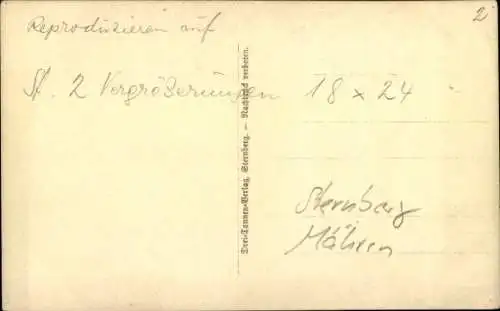 Reproduzieren auf
2
St. 2 Vergrößerungen 18 x 24
Drei-Tannen-Verlag, Sternberg. — Nachdruck verboten.
Sternberg
Mähren